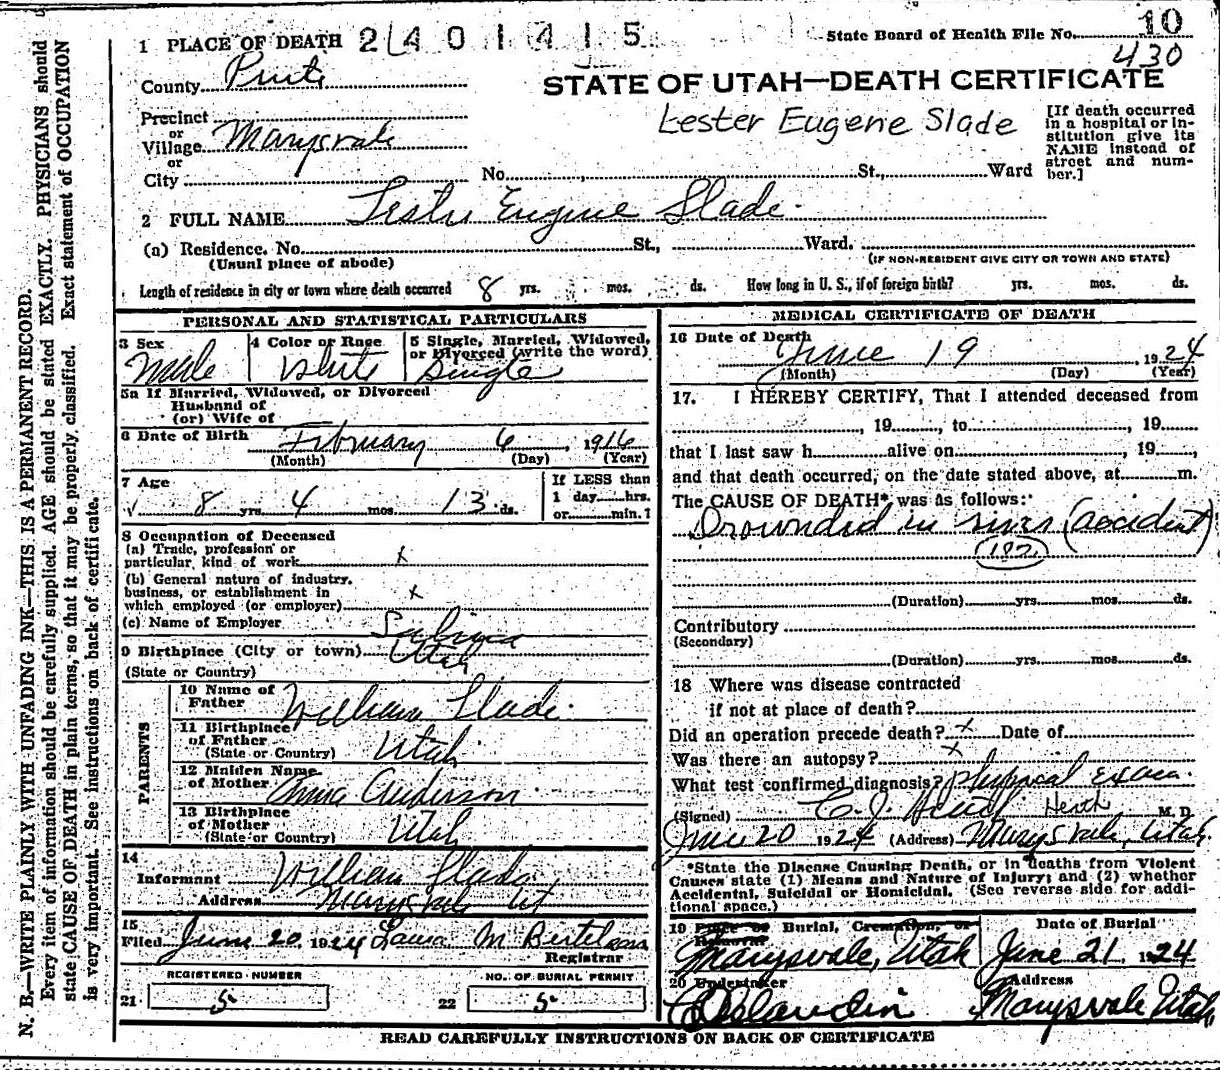 1 PLACE OF DEATH 2401415
State Board of Health File No. 10
430
County Piute
STATE OF UTAH—DEATH CERTIFICATE
Precinct
or
Village Marysvale
or
City No. St., Ward
Lester Eugene Slade
[If death occurred
in a hospital or in-
stitution give its
NAME instead of
street and num-
ber.]
2 FULL NAME Lester Eugene Slade
(a) Residence. No. St., Ward.
(Usual place of abode)
(IF NON-RESIDENT GIVE CITY OR TOWN AND STATE)
Length of residence in city or town where death occurred 8 yrs. mos. ds. How long in U. S., if of foreign birth? yrs. mos. ds.
PERSONAL AND STATISTICAL PARTICULARS
3 Sex
Male
4 Color or Race
White
5 Single, Married, Widowed,
or Divorced (write the word)
Single
5a If Married, Widowed, or Divorced
Husband of
(or) Wife of
6 Date of Birth February 6, 1916
(Month) (Day) (Year)
7 Age
8 yrs. 4 mos. 13 ds.
If LESS than
1 day hrs.
or min.?
8 Occupation of Deceased
(a) Trade, profession or
particular, kind of work x
(b) General nature of industry,
business, or establishment in
which employed (or employer) x
(c) Name of Employer
9 Birthplace (City or town) Salina
Utah
(State or Country)
PARENTS
10 Name of
Father William Slade
11 Birthplace
of Father Utah
(State or Country)
12 Maiden Name
of Mother Anna Anderson
13 Birthplace
of Mother Utah
(State or Country)
14
Informant William Slade
Address Marysvale Ut
15
Filed June 20 1924 Laura M Bertelsen
Registrar
REGISTERED NUMBER
21 5
NO. OF BURIAL PERMIT
22 5
MEDICAL CERTIFICATE OF DEATH
16 Date of Death
June 19, 1924
(Month) (Day) (Year)
17. I HEREBY CERTIFY, That I attended deceased from
, 19 , to , 19 ,
that I last saw h alive on , 19 ,
and that death occurred, on the date stated above, at m.
The CAUSE OF DEATH* was as follows:
Drownded in river (accident)
(182)
(Duration) yrs. mos. ds.
Contributory
(Secondary)
(Duration) yrs. mos. ds.
18 Where was disease contracted
if not at place of death?
Did an operation precede death? x Date of
Was there an autopsy? x
What test confirmed diagnosis? physical exam.
(Signed) C. J. Heath Heath M. D.
June 20 1924 (Address) Marysvale, Utah.
*State the Disease Causing Death, or in deaths from Violent
Causes state (1) Means and Nature of Injury; and (2) whether
Accidental, Suicidal or Homicidal. (See reverse side for addi-
tional space.)
19 Place of Burial, Cremation, or
Removal
Marysvale, Utah
Date of Burial
June 21 1924
20 Undertaker
Address
Marysvale Utah
READ CAREFULLY INSTRUCTIONS ON BACK OF CERTIFICATE
N. B.—WRITE PLAINLY WITH UNFADING INK—THIS IS A PERMANENT RECORD.
Every item of information should be carefully supplied. AGE should be stated EXACTLY. PHYSICIANS should
state CAUSE OF DEATH in plain terms, so that it may be properly classified. Exact statement of OCCUPATION
is very important. See instructions on back of certificate.